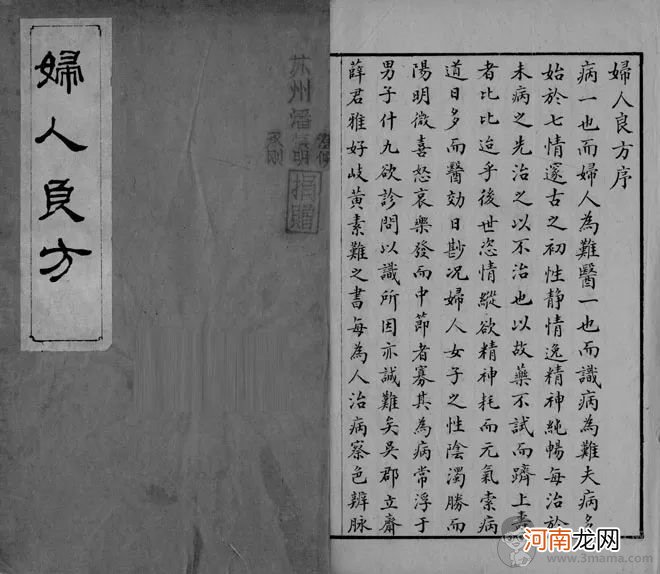 婦人良方
苏州潘
捐贈
婦人良方序
病一也而婦人為難醫一也而識病為難夫病多
始於七情邃古之初性静情逸精神純暢每治於
未病之先治之以不治也以故藥不試而躋上壽
者比比迨乎後世恣情縱欲精神耗而元氣索病
道日多而醫効日尠况婦人女子之性陰濁勝而
陽明微喜怒哀樂發而中節者寡其為病常浮于
男子什九欲診問以識所因亦誠難矣吳郡立齋
薛君雅好岐黃素難之書每為人治病察色辨脉
河南龙网
www.3mama.com